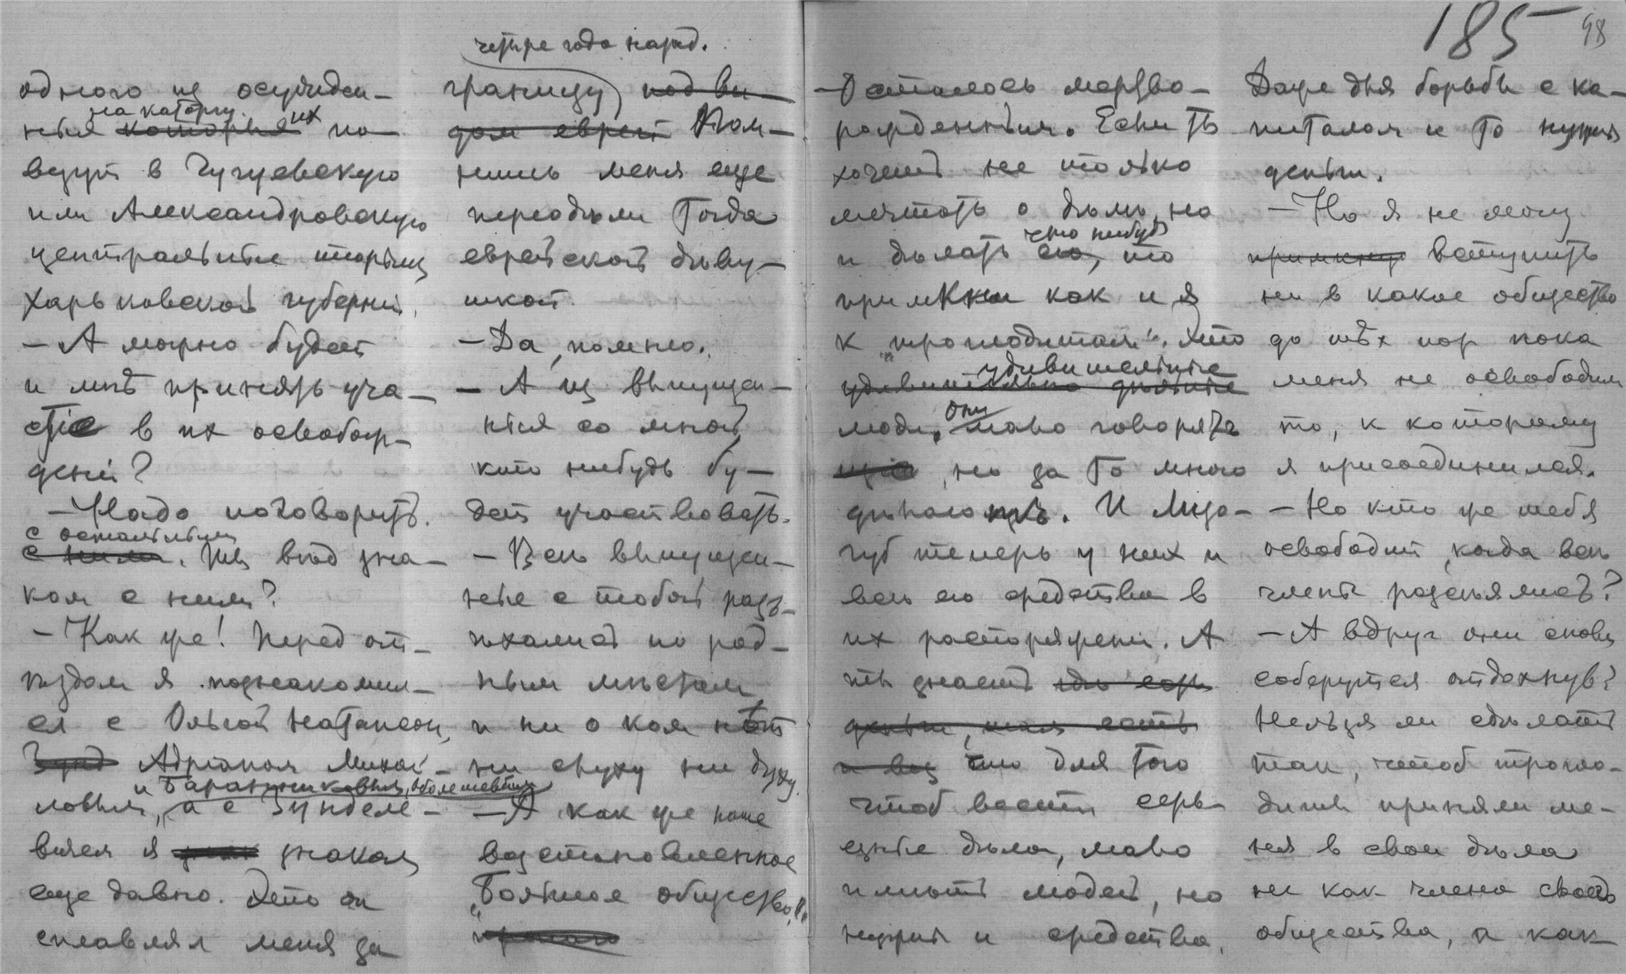 185
98
одного из осужден-
на каторгу их
ныя которыя по-
везут в Чугуевскую
или Александровскую
центральные тюрьмы
Харьковской губерніи.
— А можно будет
и мнѣ принять уча-
стіе в их освобож-
деніи?
— Надо поговорить
с остальными
с ними. Ты вѣд зна-
ком с ними?
— Как же! Перед от-
ѣздом я познакомил-
ся с Ольгой Натансон,
Зунд Адріаном Михай-
и Баранниковым, Оболешевым
ловым, а с Зунделе-
вичем я знаком
еще давно. Это он
сплавлял меня за
четыре года назад.
границу под ви-
дом еврей Пом-
нишь меня еще
переодѣли тогда
еврейской дѣву-
шкой.
— Да, помню.
— А из выпущен-
ныя со мной
кто нибудь бу-
дет участвовать.
— Всѣ выпущен-
ные с тобой разъ-
ѣхались по род-
ным мѣстам
и ни о ком нѣт
ни слуху ни духу.
— А как же наше
возстановленное
„Большое общество“
Осталось мертво-
рожденным. Если ты
хочешь не только
мечтать о дѣлѣ, но
что нибудь
и дѣлать его, то
примкни как и я
к „троглодитам“. Это
удивительные
удивительно дѣльные
люди. Они мало говорят
, но за то много
дѣлают. И Лизо-
губ теперь у них и
всѣ его средства в
их распоряженіи. А
ты знаешь
деньги, там есть
что для того
чтоб вести серь-
езные дѣла, мало
имѣть людей, но
нужны и средства.
Даже для борьбы с ка-
питалом и то нужны
деньги.
— Но я не могу
примкну вступить
ни в какое общество
до тѣх пор пока
меня не освободит
то, к которому
я присоединился.
— Но кто же тебя
освободит, когда всѣ
члены разъѣхались?
— А вдруг они снова
соберутся отдохнув?
Нельзя ли сдѣлать
так, чтоб трогло-
диты приняли ме-
ня в свои дѣла
не как члена своего
общества, а как